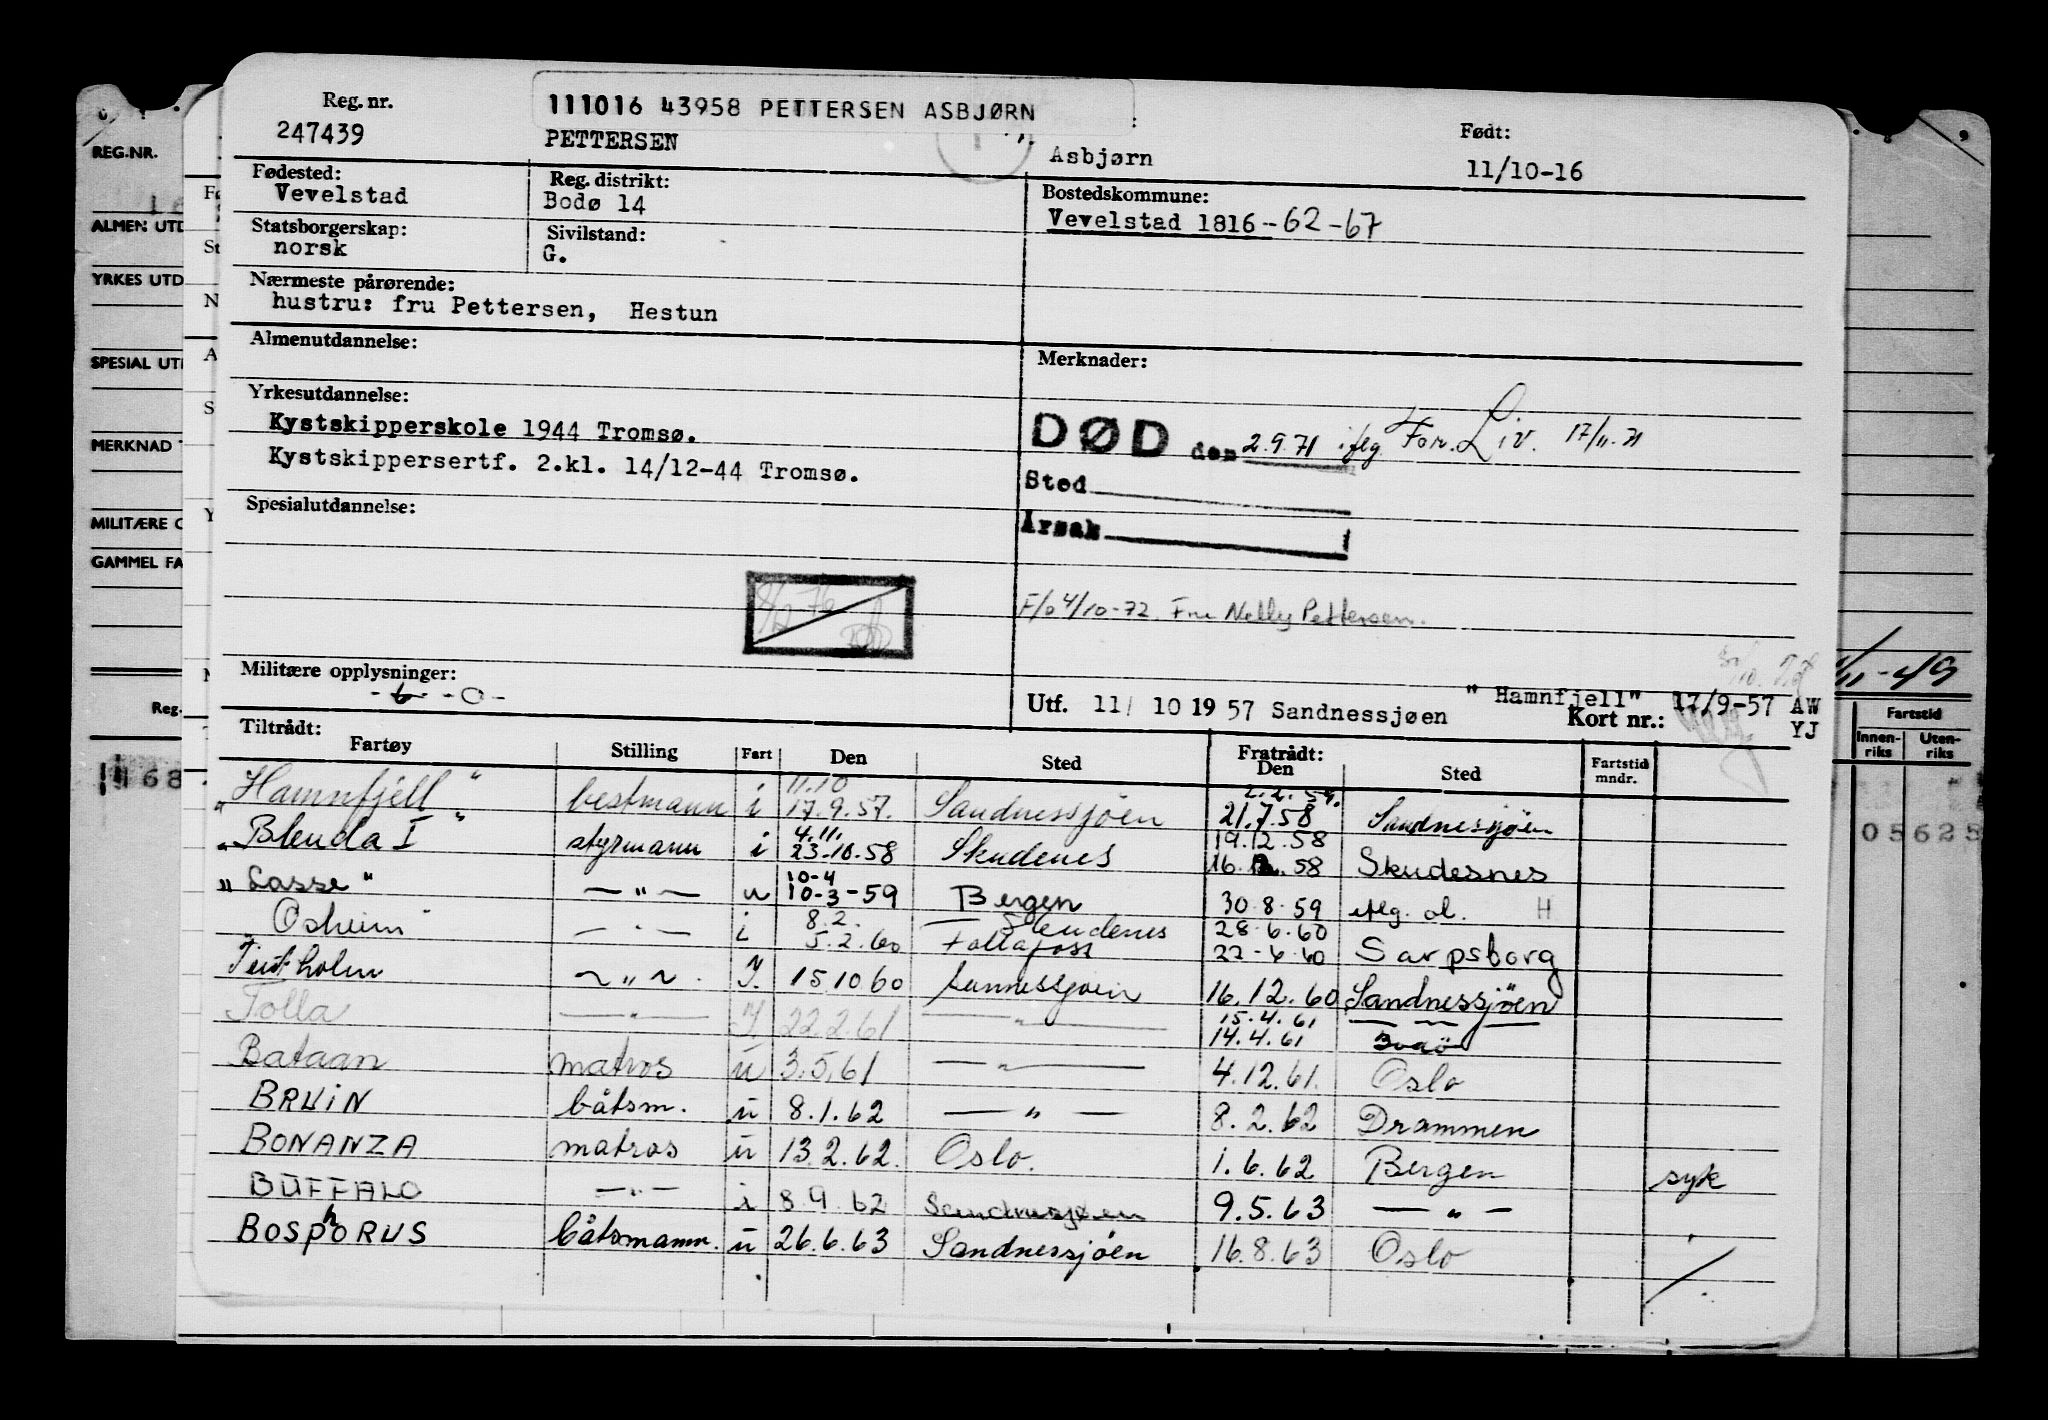 Reg. nr.
247439
111016 43958 PETTERSEN ASBJØRN
PETTERSEN
Asbjørn
Født:
11/10-16
Fødested:
Vevelstad
Reg. distrikt:
Bodø 14
Bostedskommune:
Vevelstad 1816-62-67
Statsborgerskap:
norsk
Sivilstand:
G.
Nærmeste pårørende:
hustru: fru Pettersen, Hestun
Almenutdannelse:
Merknader:
Yrkesutdannelse:
Kystskipperskole 1944 Tromsø.
Kystskippersertf. 2.kl. 14/12-44 Tromsø.
DØD den 2.9.71 iflg. For. Liv. 17/11.71
Sted
Årsak
Spesialutdannelse:
F/o 4/10-72. Fru Nelly Pettersen.
Militære opplysninger:
- 6 - 0 -
Utf. 11/ 10 1957 Sandnessjøen
"Hamnfjell" 17/9-57 AW
Kort nr.:
YJ
Tiltrådt:
Fartøy Stilling Fart Den Sted
Fratrådt:
Den Sted Fartstid mndr.
"Hamnfjell" bestmann i 11.10 17.9.57. Sandnessjöen 2.2.59. 21.7.58 Sandnessjöen
"Blenda I" styrmann i 4.11. 23.10.58 Skudenes 19.12.58 16.12.58 Skudesnes
"Lasse" — " — u 10-4 10-3-59 Bergen 30.8.59 iflg. ol. H
Osheim — " — i 8.2. 5.2.60 Skudenes 28.6.60 22-6.60 Sarpsborg
holm — " — . Y. 15.10.60 16.12.60 Sandnessjöen
Tolla — " — Y 22.2.61 — " — 15.4.61 14.4.61 Bodö
Bataan matros u 3.5.61 — " — 4.12.61. Oslo
BRUIN båtsm. u 8.1.62 — " — 8.2.62 Drammen
BONANZA matros u 13.2.62. Oslo. 1.6.62 Bergen syk
BUFFALO — " — i 8.9.62 Sandnessjøen 9.5.63 — " —
BOSPhORUS båtsmann. u 26.6.63 Sandnessjöen 16.8.63 Oslo
REG.NR.
ALMEN UTD
YRKES UTD
SPESIAL UT
MERKNAD
MILITÆRE
GAMMEL FA
Reg.
68
9
11-49
Fartstid
Innenriks
Utenriks
05625